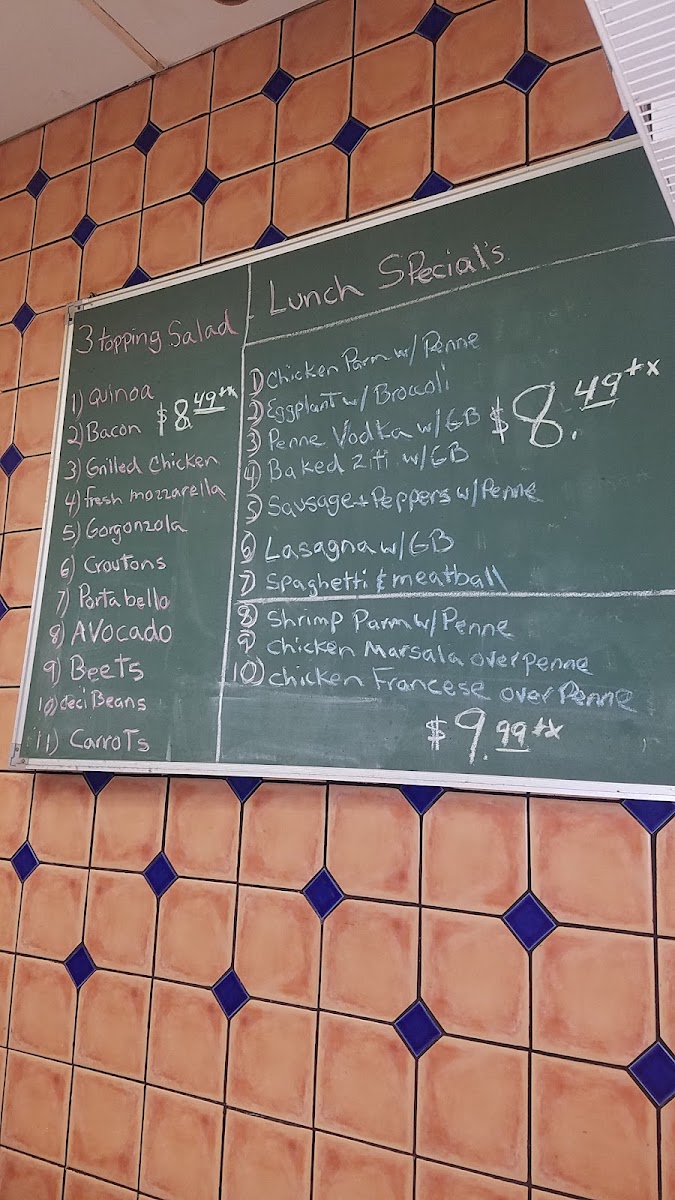 3 topping Salad
1) Quinoa
$8.49+x
2) Bacon
3) Grilled Chicken
4) fresh mozzarella
5) Gorgonzola
6) Croutons
7) Portabello
8) AVocado
9) Beets
10) ceci Beans
11) CarroTs
Lunch SPecial's
1) Chicken Parm w/ Penne
2) Eggplant w/ Broccoli
3) Penne Vodka w/GB
$8.49+x
4) Baked Ziti w/GB
5) Sausage+Peppers w/Penne
6) Lasagna w/GB
7) Spaghetti & meatball
8) Shrimp Parm w/ Penne
9) chicken Marsala over penne
10) chicken Francese over Penne
$9.99+x